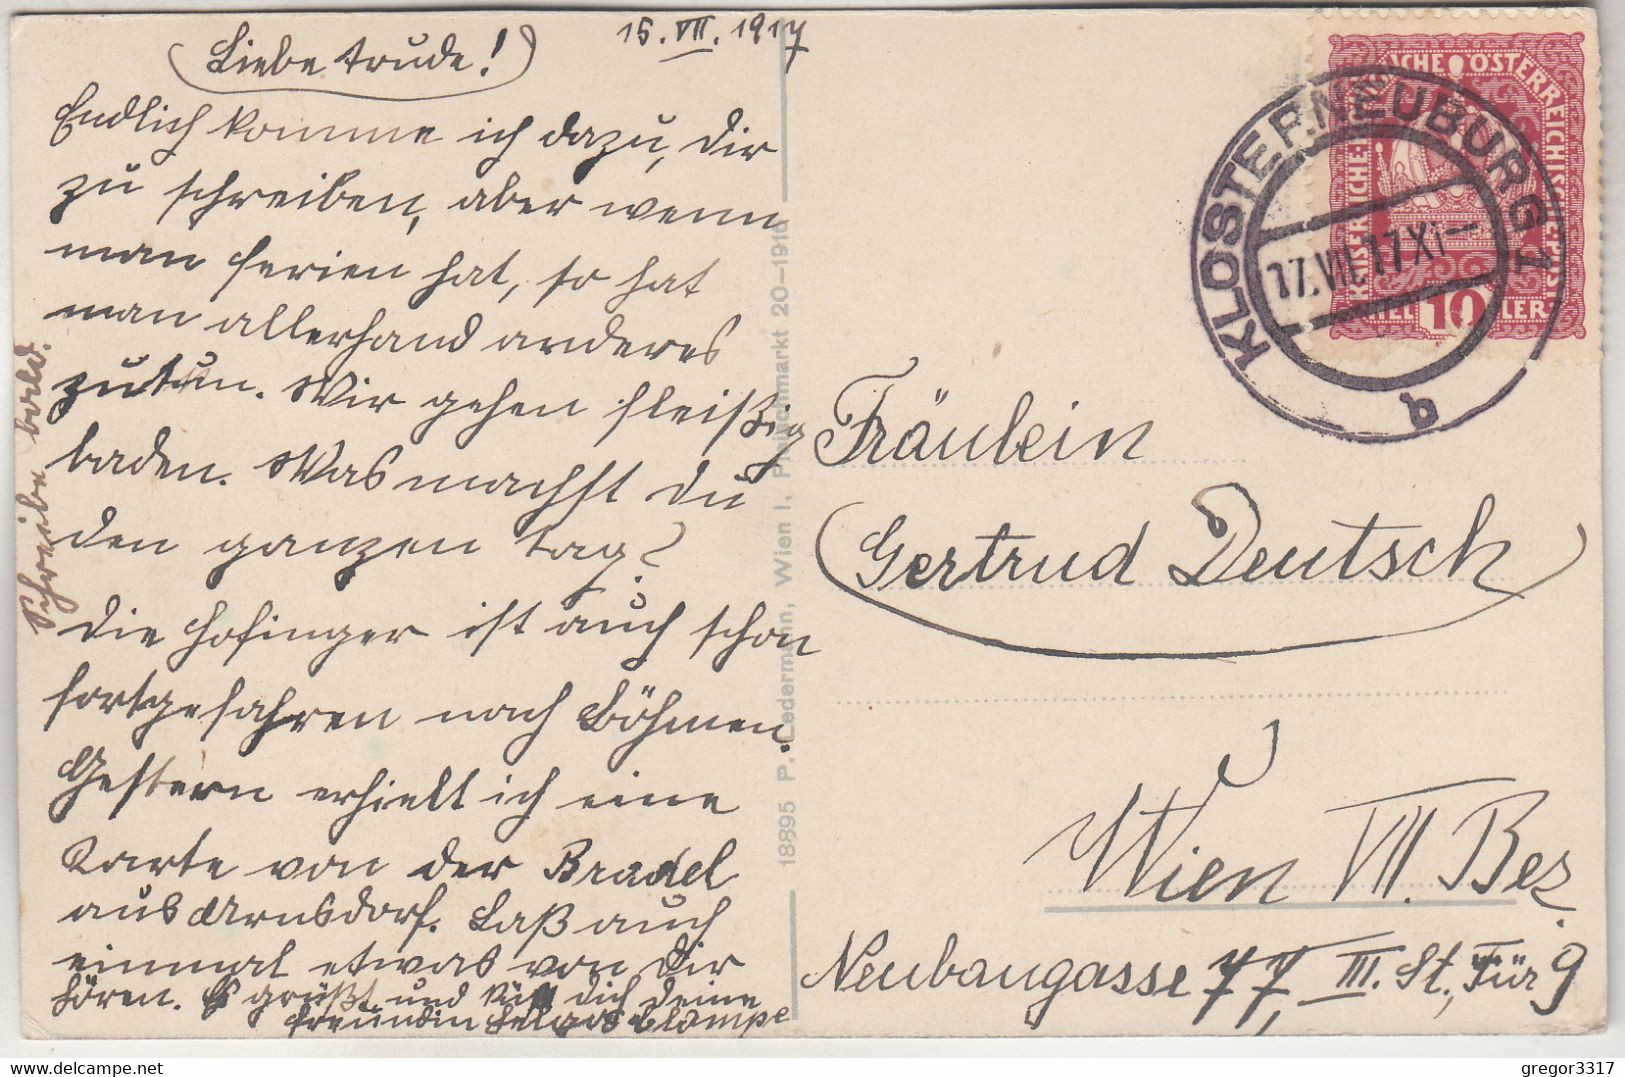 15. VII. 1917
Liebe Trude!
Endlich komme ich dazu, dir
zu schreiben, aber wenn
man Ferien hat, so hat
man allerhand anderes
zutun. Wir gehen fleißig
baden. Was machst du
den ganzen Tag?
Die Hofinger ist auch schon
fortgefahren nach Böhmen.
Gestern erhielt ich eine
Karte von der Bradel
aus Arnsdorf. Laß auch
einmal etwas von Dir
hören. Es grüßt und küßt dich Deine
Freundin
Schreibe bald.
18895 P. Ledermann, Wien I. Fleischmarkt 20–1916
KAISERRICHE KÖNIGLICHE ÖSTERREICHISCHE POST
HELLER 10
KLOSTERNEUBURG 1
17.VII.17 XI–
b
Fräulein
Gertrud Deutsch
Wien VII. Bez.
Neubaugasse 77, III. St., Tür 9
gregor3317